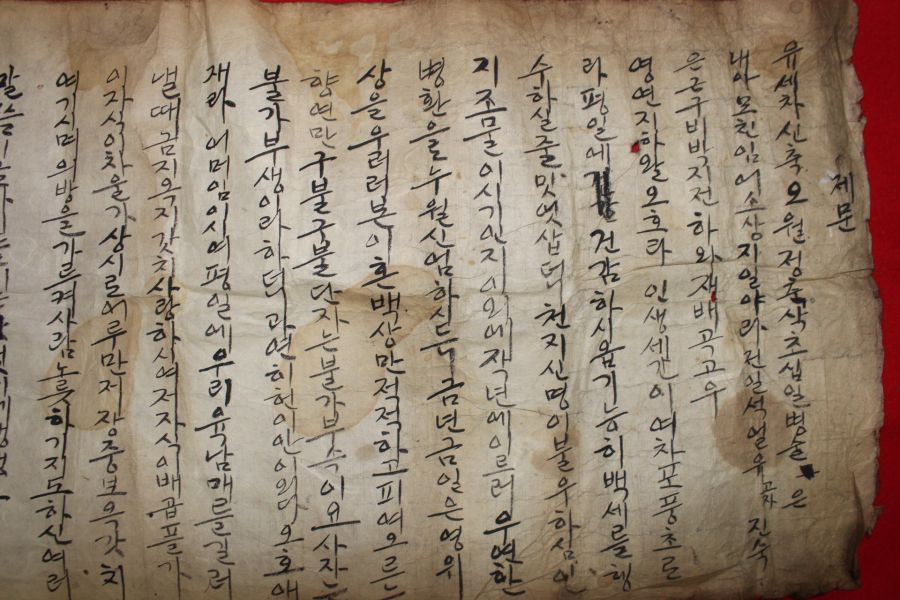 제문
유세차신축오월정축삭초십일병술은
내아모친임의소상지일야라전일석일유고자진수
은근구비박전하와재배곡고우
영연지하왈오호라인생세간이여차포풍초로
라평일에건강하시옵기능히백세를향
수하실줄밋엇삽더니천지신명이불우하심인
지줌물이시기인지이외에작년에이르러우연한
병환을누월신엄하시든니금년금일은영위
상을우러러본이혼백상만적적하고피여오르는
향연만구불구불단자는불가부속이요사자는
불가부생이라하더니과연허언이안이외다오호애
재라어머임이시여평일에우리육남매를길러
낼때금지옥지갓치사랑하시여저자식이배곱플가
이자식이차울가상시로어루만저장중보옥갓치
여기시며의방을가르켜사람노릇하기지도하신여러
말슴